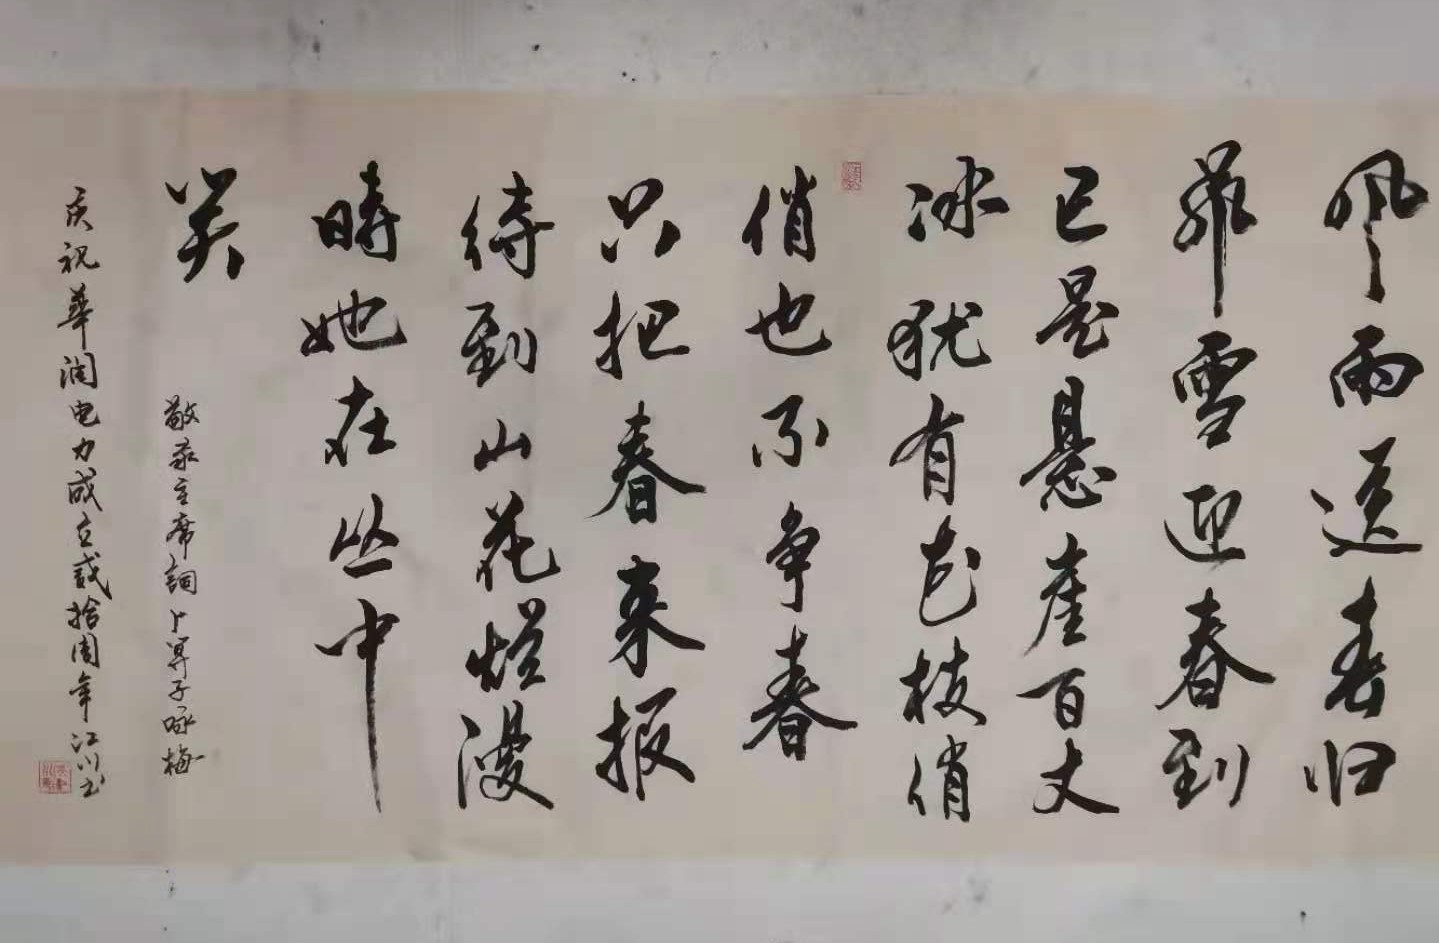 风雨送春归
飛雪迎春到
已是悬崖百丈
冰犹有花枝俏
俏也不争春
只把春来报
待到山花烂漫
時她在丛中
笑
敬录主席詞卜算子咏梅
庆祝華润电力成立贰拾周年 江川书